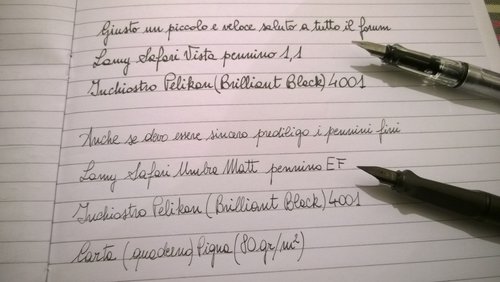 Giusto un piccolo e veloce saluto a tutto il forum
Lamy Safari Vista pennino 1,1
Inchiostro Pelikan (Brilliant Black) 4001
Anche se devo essere sincero prediligo i pennini fini
Lamy Safari Umbra Matt pennino EF
Inchiostro Pelikan (Brilliant Black) 4001
Carta (quaderno) Pigna (80 gr/m²)